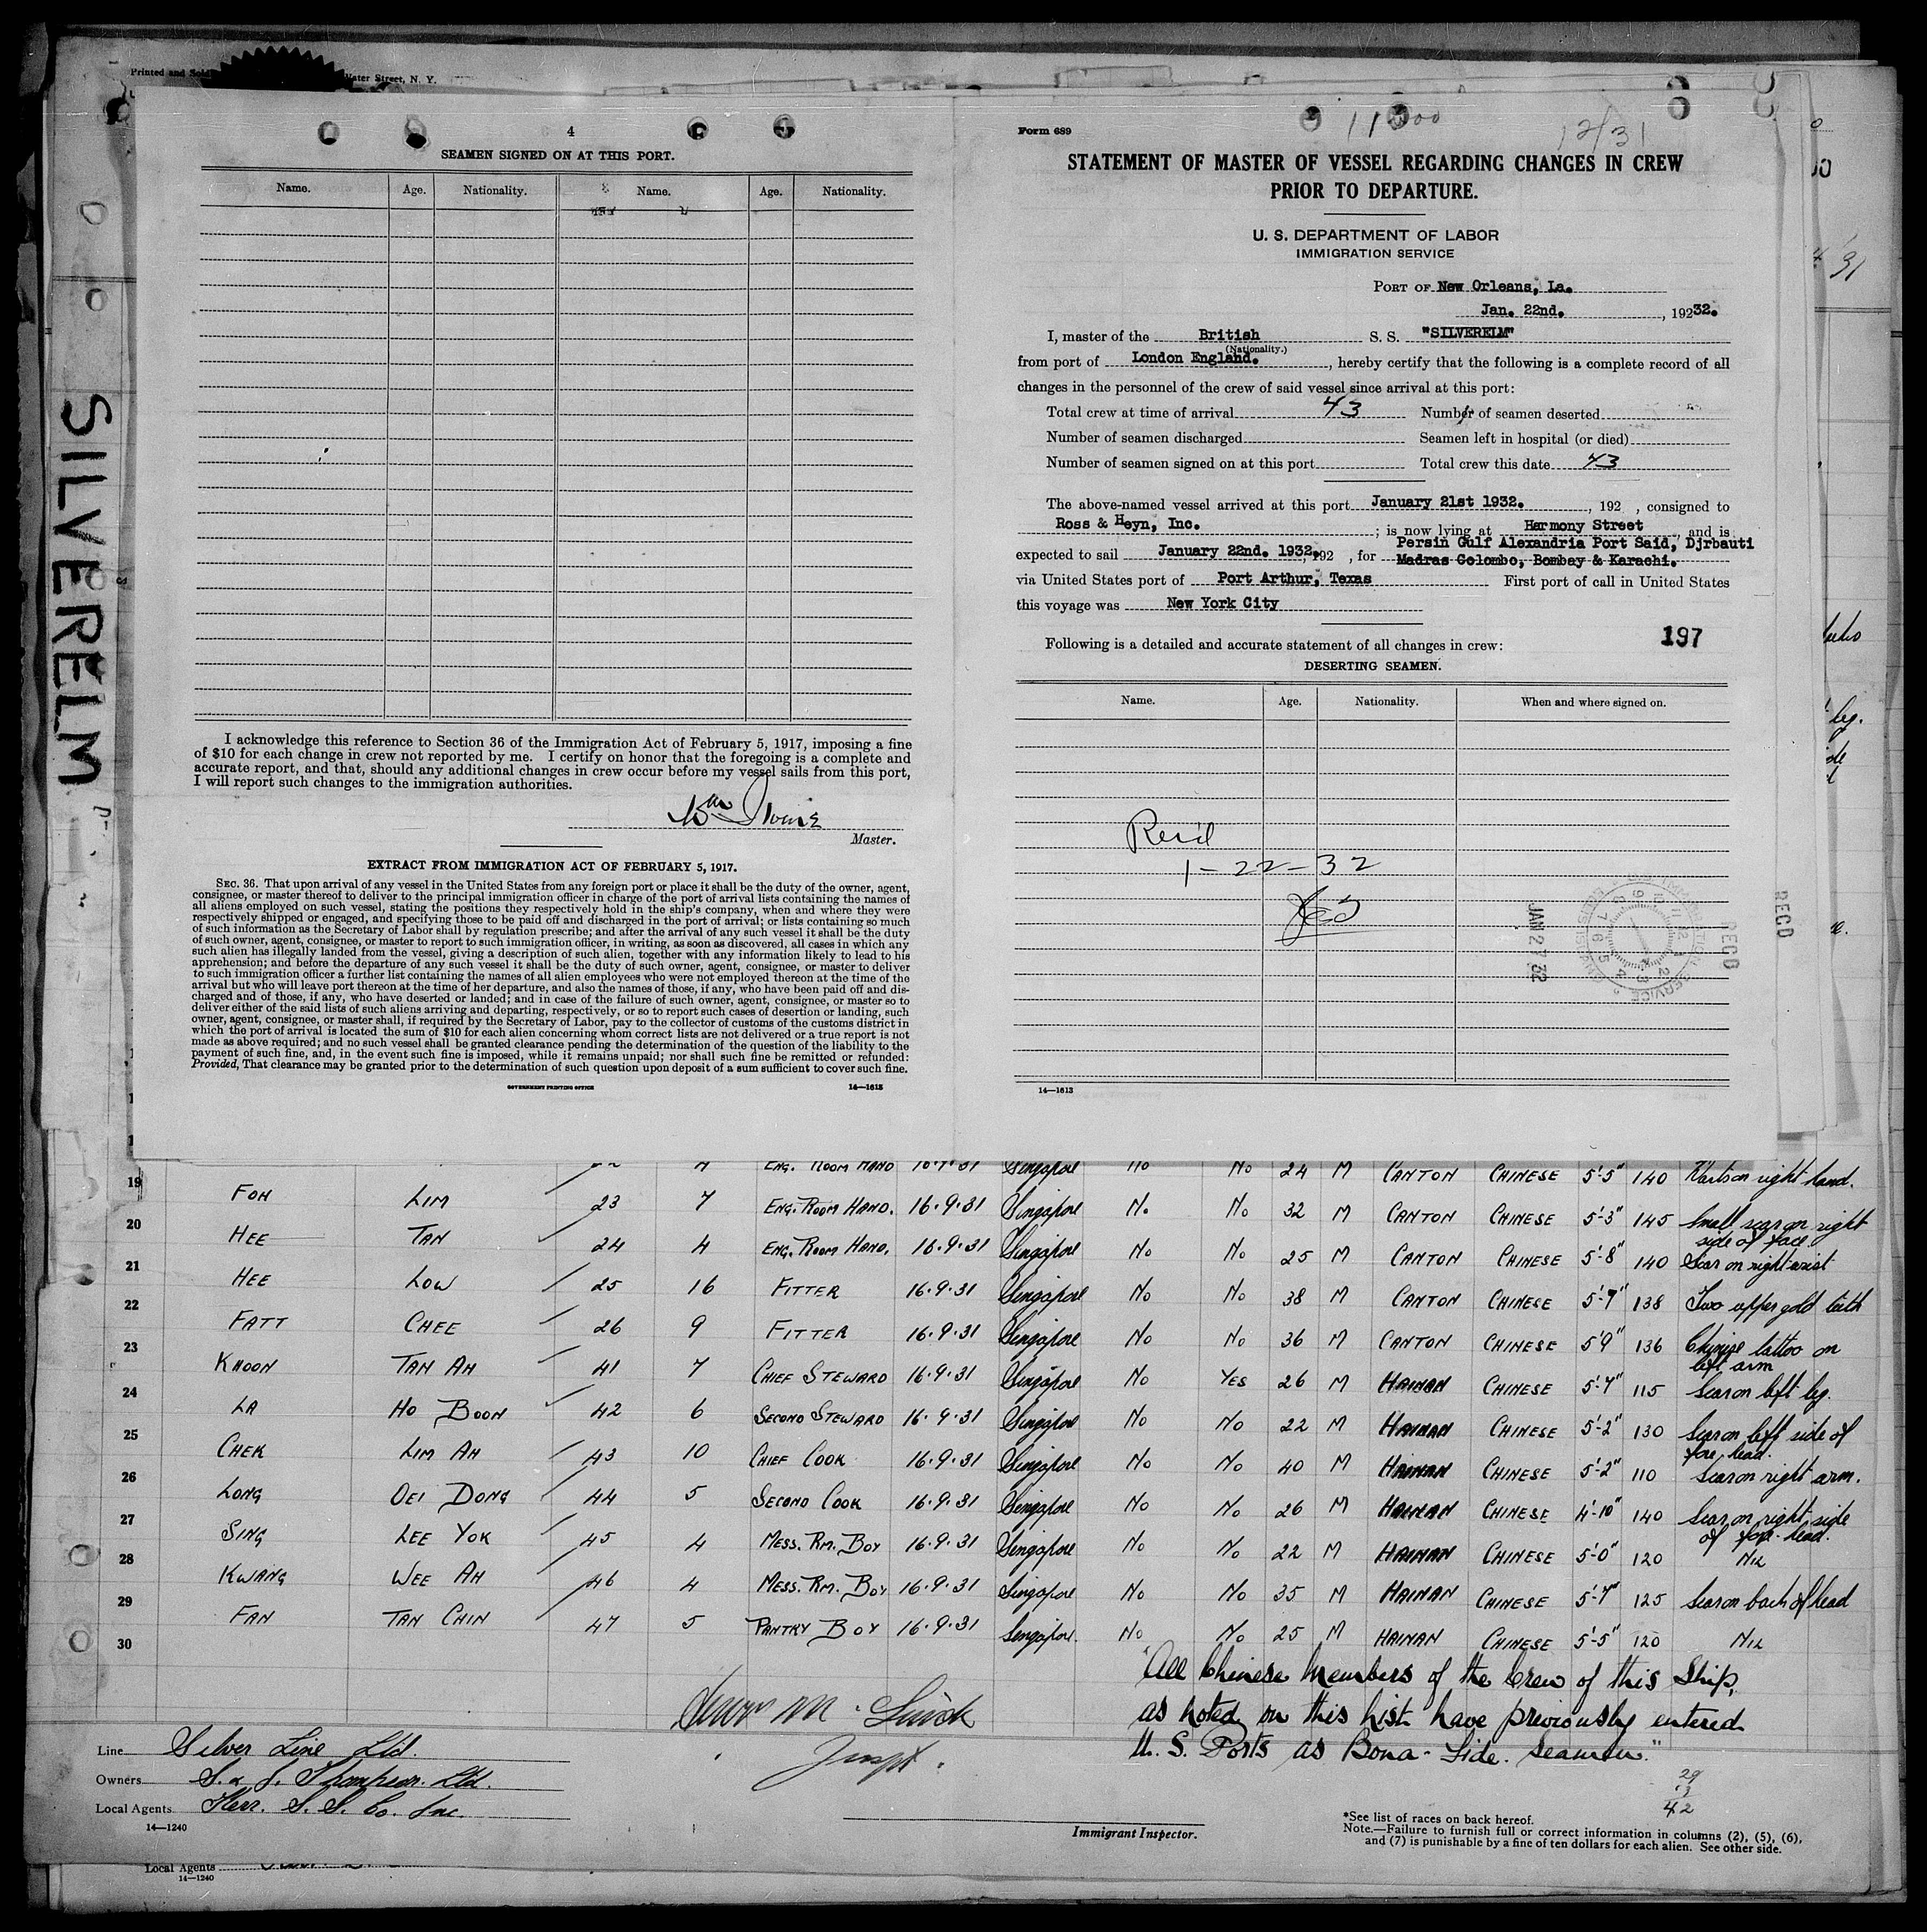 Printed and Sold
Water Street, N. Y.
SILVERELM
4
SEAMEN SIGNED ON AT THIS PORT.
Name. Age. Nationality. Name. Age. Nationality.
I acknowledge this reference to Section 36 of the Immigration Act of February 5, 1917, imposing a fine
of $10 for each change in crew not reported by me. I certify on honor that the foregoing is a complete and
accurate report, and that, should any additional changes in crew occur before my vessel sails from this port,
I will report such changes to the immigration authorities.
Master.
EXTRACT FROM IMMIGRATION ACT OF FEBRUARY 5, 1917.
SEC. 36. That upon arrival of any vessel in the United States from any foreign port or place it shall be the duty of the owner, agent,
consignee, or master thereof to deliver to the principal immigration officer in charge of the port of arrival lists containing the names of
all aliens employed on such vessel, stating the positions they respectively hold in the ship's company, when and where they were
respectively shipped or engaged, and specifying those to be paid off and discharged in the port of arrival; or lists containing so much
of such information as the Secretary of Labor shall by regulation prescribe; and after the arrival of any such vessel it shall be the duty
of such owner, agent, consignee, or master to report to such immigration officer, in writing, as soon as discovered, all cases in which any
such alien has illegally landed from the vessel, giving a description of such alien, together with any information likely to lead to his
apprehension; and before the departure of any such vessel it shall be the duty of such owner, agent, consignee, or master to deliver
to such immigration officer a further list containing the names of all alien employees who were not employed thereon at the time of the
arrival but who will leave port thereon at the time of her departure, and also the names of those, if any, who have been paid off and dis-
charged and of those, if any, who have deserted or landed; and in case of the failure of such owner, agent, consignee, or master so to
deliver either of the said lists of such aliens arriving and departing, respectively, or so to report such cases of desertion or landing, such
owner, agent, consignee, or master shall, if required by the Secretary of Labor, pay to the collector of customs of the customs district in
which the port of arrival is located the sum of $10 for each alien concerning whom correct lists are not delivered or a true report is not
made as above required; and no such vessel shall be granted clearance pending the determination of the question of the liability to the
payment of such fine, and, in the event such fine is imposed, while it remains unpaid; nor shall such fine be remitted or refunded:
Provided, That clearance may be granted prior to the determination of such question upon deposit of a sum sufficient to cover such fine.
GOVERNMENT PRINTING OFFICE 14—1613
Form 689
12/31
STATEMENT OF MASTER OF VESSEL REGARDING CHANGES IN CREW
PRIOR TO DEPARTURE.
U. S. DEPARTMENT OF LABOR
IMMIGRATION SERVICE
PORT OF New Orleans, La.
Jan. 22nd. , 19232.
I, master of the British S. S. "SILVERELM"
(Nationality.)
from port of London England. , hereby certify that the following is a complete record of all
changes in the personnel of the crew of said vessel since arrival at this port:
Total crew at time of arrival 43 Number of seamen deserted
Number of seamen discharged Seamen left in hospital (or died)
Number of seamen signed on at this port Total crew this date 43
The above-named vessel arrived at this port January 21st 1932. , 192 , consigned to
Ross & Heyn, Inc. ; is now lying at Harmony Street , and is
Persin Gulf Alexandria Port Said, Djrbauti
expected to sail January 22nd. 1932. 192 , for Madras Colombo, Bombay & Karachi.
via United States port of Port Arthur, Texas First port of call in United States
this voyage was New York City
197
Following is a detailed and accurate statement of all changes in crew:
DESERTING SEAMEN.
Name. Age. Nationality. When and where signed on.
Rec'd
1-22-32
JAN 27 32
RECD
RECD
14—1613
ENG. ROOM HAND Singapore No No 24 M CANTON CHINESE 5'-5" 140 right hand.
19 FOH LIM 23 7 ENG. ROOM HAND. 16.9.31 Singapore No No 32 M CANTON CHINESE 5'-3" 145 Small scar on right
side of face.
20 HEE TAN 24 4 ENG. ROOM HAND. 16.9.31 Singapore No No 25 M CANTON CHINESE 5'-8" 140 Scar on right wrist
21 HEE LOW 25 16 FITTER 16.9.31 Singapore No No 38 M CANTON CHINESE 5'-7" 138 Two upper gold teeth
22 FATT CHEE 26 9 FITTER 16.9.31 Singapore No No 36 M CANTON CHINESE 5'9" 136 Chinese tattoo on
left arm
23 KHOON TAN AH 41 7 CHIEF STEWARD 16.9.31 Singapore No YES 26 M HAINAN CHINESE 5'-7" 115 Scar on left leg.
24 LA HO BOON 42 6 SECOND STEWARD 16.9.31 Singapore No No 22 M HAINAN CHINESE 5'-2" 130 Scar on left side of
fore-head.
25 CHEK LIM AH 43 10 CHIEF COOK 16.9.31 Singapore No No 40 M HAINAN CHINESE 5'-2" 110 Scar on right arm.
26 LONG OEI DONG 44 5 SECOND COOK 16.9.31 Singapore No No 26 M HAINAN CHINESE 4'-10" 140 Scar on right side
of fore-head.
27 SING LEE YOK 45 4 MESS. RM. BOY 16.9.31 Singapore No No 22 M HAINAN CHINESE 5'-0" 120 NIL
28 KWANG WEE AH 46 4 MESS. RM. BOY 16.9.31 Singapore No No 35 M HAINAN CHINESE 5'-7" 125 Scar on back of head
29 FAN TAN CHIN 47 5 PANTRY BOY 16.9.31 Singapore. No No 25 M HAINAN CHINESE 5'-5" 120 NIL
30
"All Chinese Members of the Crew of this Ship,
as noted on this list have previously entered
U. S. Ports as Bona-fide. Seamen."
Line Silver Line Ltd.
Owners S. & J. Thompson. Ltd.
Local Agents Kerr. S. S. Co. Inc.
14—1240
Immigrant Inspector.
29
13
42
*See list of races on back hereof.
Note.—Failure to furnish full or correct information in columns (2), (5), (6),
and (7) is punishable by a fine of ten dollars for each alien. See other side.
Local Agents
14—1240